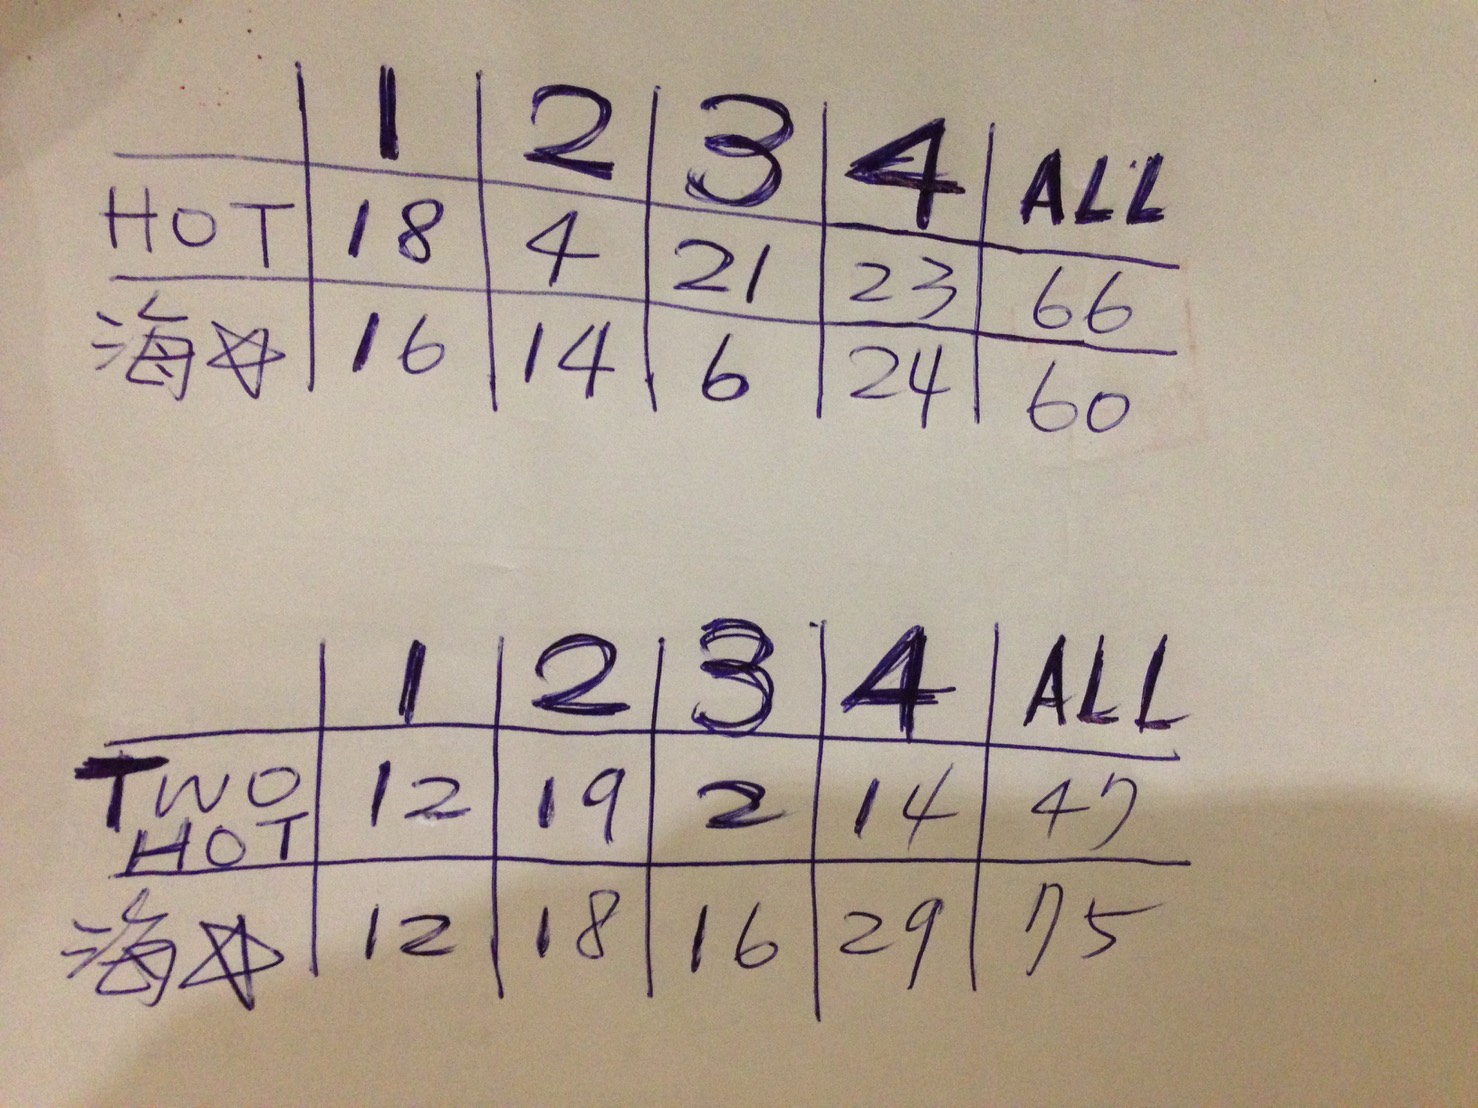 1 2 3 4 ALL
HOT 18 4 21 23 66
海☆ 16 14 6 24 60
1 2 3 4 ALL
TWO
HOT 12 19 2 14 47
海☆ 12 18 16 29 75